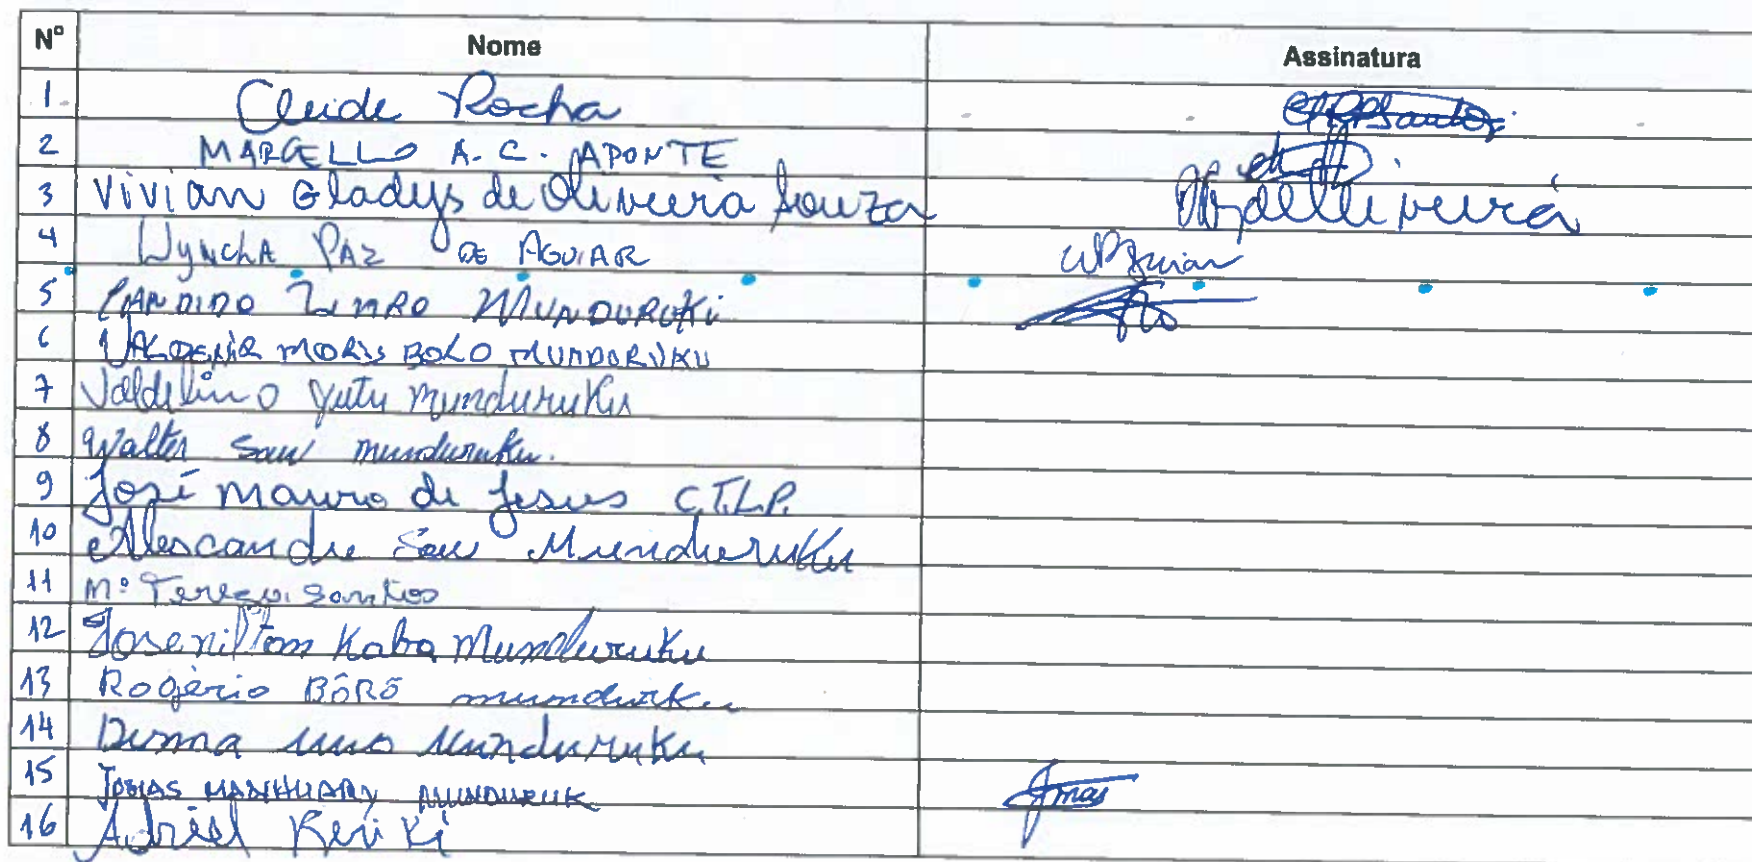 Nº Nome Assinatura
1 Cleide Rocha
2 MARCELLO A. C. APONTE
3 Vivian Gladys de Oliveira Souza
4 WYNCHA PAZ DE AGUIAR WPAguiar
5 CANDIDO MUNDURUKI
6 VALDEMIR BORO MUNDURUKU
7 Valdelino Yutu Munduruku
8 Walter Saw munduruku.
9 José Mauro de Jesus C.T.L.P.
10 Alescandre Saw Munduruku
11 Mº Tereza Santos
12 Josenilton Kaba Munduruku
13 Rogério BÔRÔ
14 Munduruku
15 TOBIAS MANHUARY MUNDURUK
16 Adriel